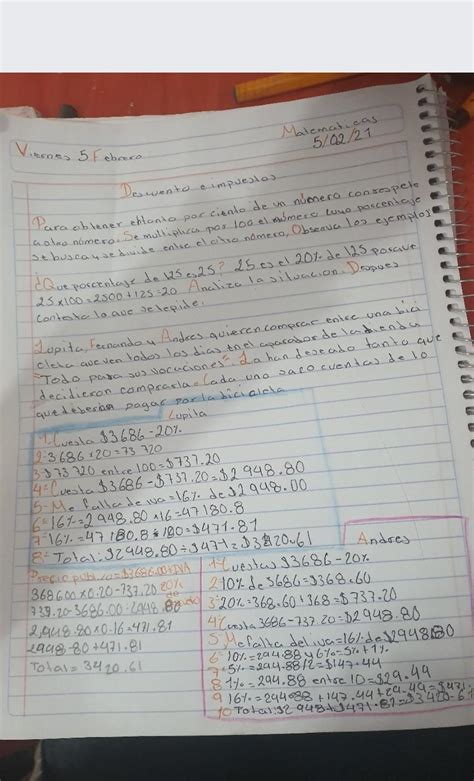 Matematicas
Viernes 5 Febrero 5/02/21
Descuento e impuestos
Para obtener el tanto por ciento de un número con respeto
a otro número. Se multiplica por 100 el número cuyo porcentage
se busca y se divide entre el otro número, Observa los ejemplos
¿Que porcentage de 125 es 25? 25 es el 20% de 125 porque
25x100=2500÷125=20 Analiza la situacion. Despues
contesta lo que se te pide.
Lupita, Fernando y Andres quieren comprar entre una bici
cleta que ven todos los dias en el aparador de la tienda
"Todo para sus vacaciones". La han deseado tanto que
decidieron comprarla. Cada uno saco cuentas de lo
que deberan pagar por la bicicleta
Lupita
1-Cuesta $3686-20%
2-3686x20=73 720
3-$73 720 entre 100=$737.20
4=Cuesta $3686-$737.20=$2948.80
5-Me falta de iva=16% de $2948.00
6=16%=2948.80x16=47180.8
7-16%=47180.8÷100=$471.81
8-Total:$2948.80+$471=$3420.61
Precio publico=$3686.00+IVA
368600x0.20-737.20 20%
737.20-3686.00-2948.80
2,948.80x0.16=471.81
2948.80+471.81
Total=3420.61
Andres
1-Cuesta $3686-20%
2-10% de 3686=$368.60
3-20%=368.60+368=$737.20
4-Cuesta 3686-737.20=$2948.80
5-Me falta del iva=16% de $2948.80
6-10%=294.88 y 6%-5%+1%
7-5%=294.88/2=$147.44
8 1%=294.88 entre 10=$29.49
9 16%=294.88+147.44+29.49=$471.
10 Total:$2948+$471.81=$3420.6